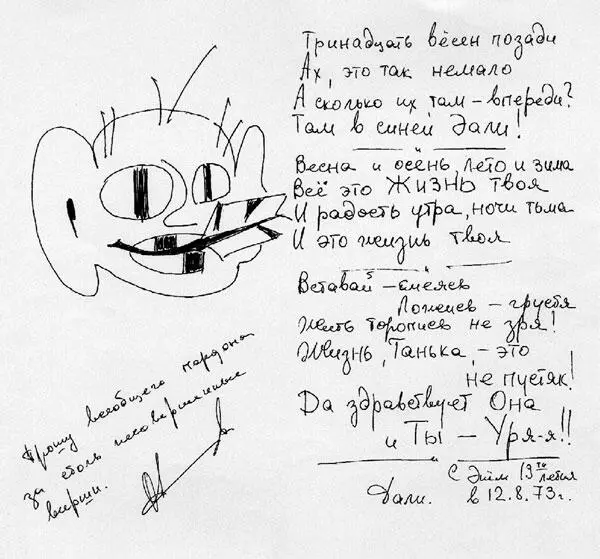 Тринадцать вёсен позади
Ах, это так немало
А сколько их там – впереди?
Там в синей Дали!
Весна и осень, лето и зима
Всё это Жизнь твоя
И радость утра, ночи тьма
И это жизнь твоя
Вставай – смеясь
Ложись – грустя
Жить торопись не зря!
Жизнь, Танька, – это
не пустяк!
Да здравствует Она
и Ты – Уря-я!!
С Днём 13ти летия
Дали. в 12.8.73г.
Прошу всеобщего пардона
за столь несовершенные
вирши.